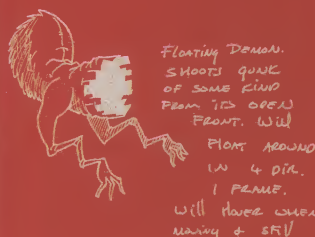 Floating Demon.
Shoots gunk
of some kind
from its open
front. Will
float around
in 4 dir.
1 frame.
Will hover when
moving &